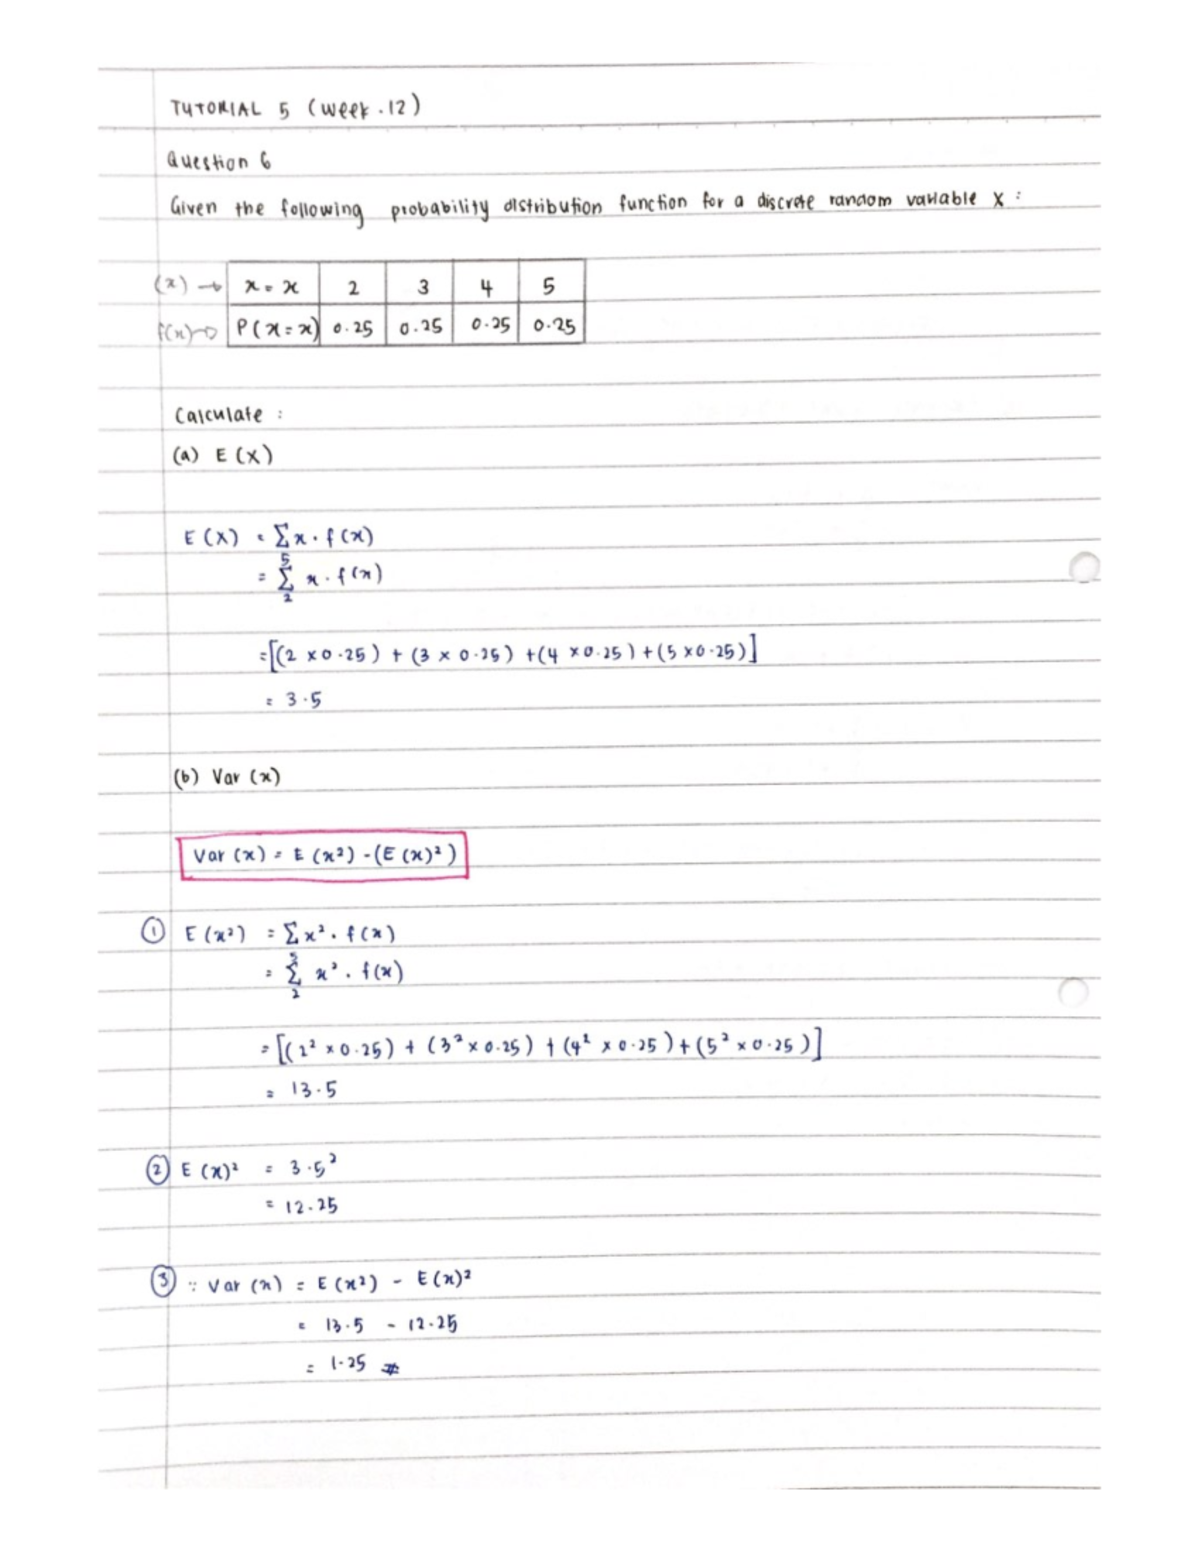 TUTORIAL 5 (week . 12)
Question 6
Given the following probability distribution function for a discrete random variable X :
(x) → x = x 2 3 4 5
f(x) → P(x = x) 0.25 0.25 0.25 0.25
Calculate :
(a) E (X)
E (X) = Σx . f(x)
5
= Σ x . f(x)
2
= [(2 × 0.25) + (3 × 0.25) + (4 × 0.25) + (5 × 0.25)]
= 3.5
(b) Var (x)
Var (x) = E (x²) - (E (x)²)
① E (x²) = Σx² . f(x)
5
= Σ x² . f(x)
2
= [(2² × 0.25) + (3² × 0.25) + (4² × 0.25) + (5² × 0.25)]
= 13.5
② E (x)² = 3.5²
= 12.25
③ ∵ Var (x) = E (x²) - E (x)²
= 13.5 - 12.25
= 1.25 #